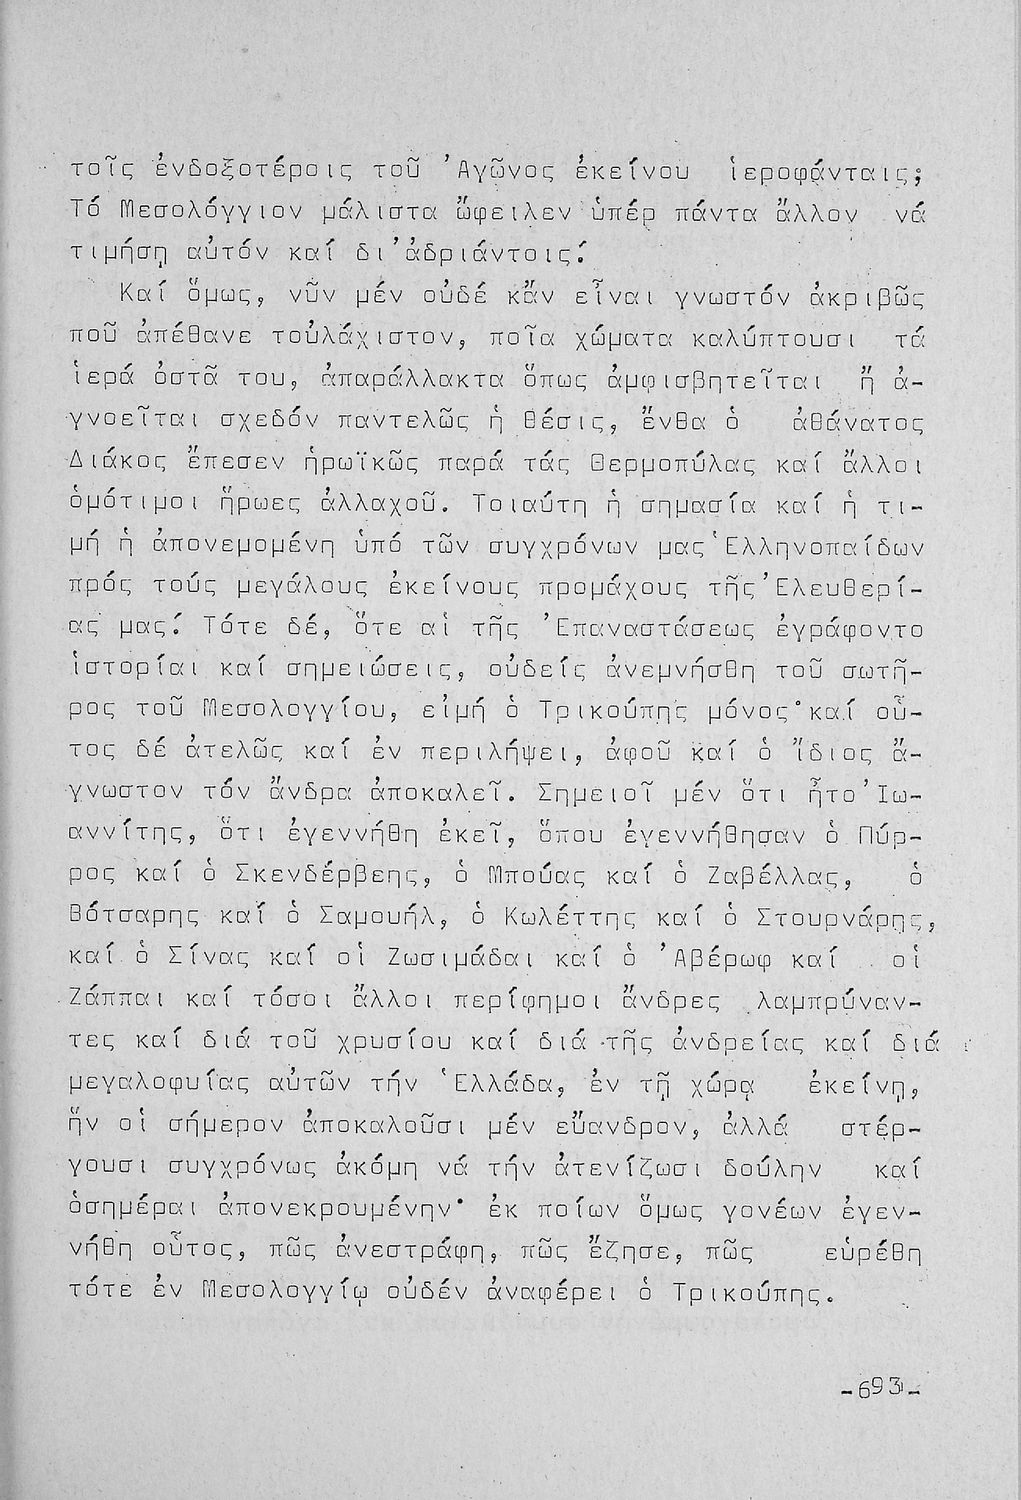 τοῖς ἐνδοξοτέροις τοῦ Ἀγῶνος ἐκείνου ἱεροφάνταις;
Τό Μεσολόγγιον μάλιστα ὤφειλεν ὑπέρ πάντα ἄλλον νά
τιμήσῃ αὐτόν καί δι' ἀδριάντοις!
Καί ὅμως, νῦν μέν οὐδέ κἄν εἶναι γνωστόν ἀκριβῶς
ποῦ ἀπέθανε τοὐλάχιστον, ποῖα χώματα καλύπτουσι τά
ἱερά ὀστᾶ του, ἀπαράλλακτα ὅπως ἀμφισβητεῖται ἤ ἀ-
γνοεῖται σχεδόν παντελῶς ἡ θέσις, ἔνθα ὁ ἀθάνατος
Διάκος ἔπεσεν ἡρωϊκῶς παρά τάς Θερμοπύλας καί ἄλλοι
ὁμότιμοι ἥρωες ἀλλαχοῦ. Τοιαύτη ἡ σημασία καί ἡ τι-
μή ἡ ἀπονεμομένη ὑπό τῶν συγχρόνων μας Ἑλληνοπαίδων
πρός τούς μεγάλους ἐκείνους προμάχους τῆς Ἐλευθερί-
ας μας! Τότε δέ, ὅτε αἱ τῆς Ἐπαναστάσεως ἐγράφοντο
ἱστορίαι καί σημειώσεις, οὐδείς ἀνεμνήσθη τοῦ σωτῆ-
ρος τοῦ Μεσολογγίου, εἰμή ὁ Τρικούπης μόνος· καί οὗ-
τος δέ ἀτελῶς καί ἐν περιλήψει, ἀφοῦ καί ὁ ἴδιος ἄ-
γνωστον τόν ἄνδρα ἀποκαλεῖ. Σημειοῖ μέν ὅτι ἦτο Ἰω-
αννίτης, ὅτι ἐγεννήθη ἐκεῖ, ὅπου ἐγεννήθησαν ὁ Πύρ-
ρος καί ὁ Σκενδέρβεης, ὁ Μπούας καί ὁ Ζαβέλλας, ὁ
Βότσαρης καί ὁ Σαμουήλ, ὁ Κωλέττης καί ὁ Στουρνάρης,
καί ὁ Σίνας καί οἱ Ζωσιμάδαι καί ὁ Ἀβέρωφ καί οἱ
Ζάππαι καί τόσοι ἄλλοι περίφημοι ἄνδρες λαμπρύναν-
τες καί διά τοῦ χρυσίου καί διά τῆς ἀνδρείας καί διά
μεγαλοφυΐας αὐτῶν τήν Ἑλλάδα, ἐν τῇ χώρᾳ ἐκείνῃ,
ἥν οἱ σήμερον ἀποκαλοῦσι μέν εὔανδρον, ἀλλά στέρ-
γουσι συγχρόνως ἀκόμη νά τήν ἀτενίζωσι δούλην καί
ὁσημέραι ἀπονεκρουμένην· ἐκ ποίων ὅμως γονέων ἐγεν-
νήθη οὗτος, πῶς ἀνεστράφη, πῶς ἔζησε, πῶς εὑρέθη
τότε ἐν Μεσολογγίῳ οὐδέν ἀναφέρει ὁ Τρικούπης.
-693-